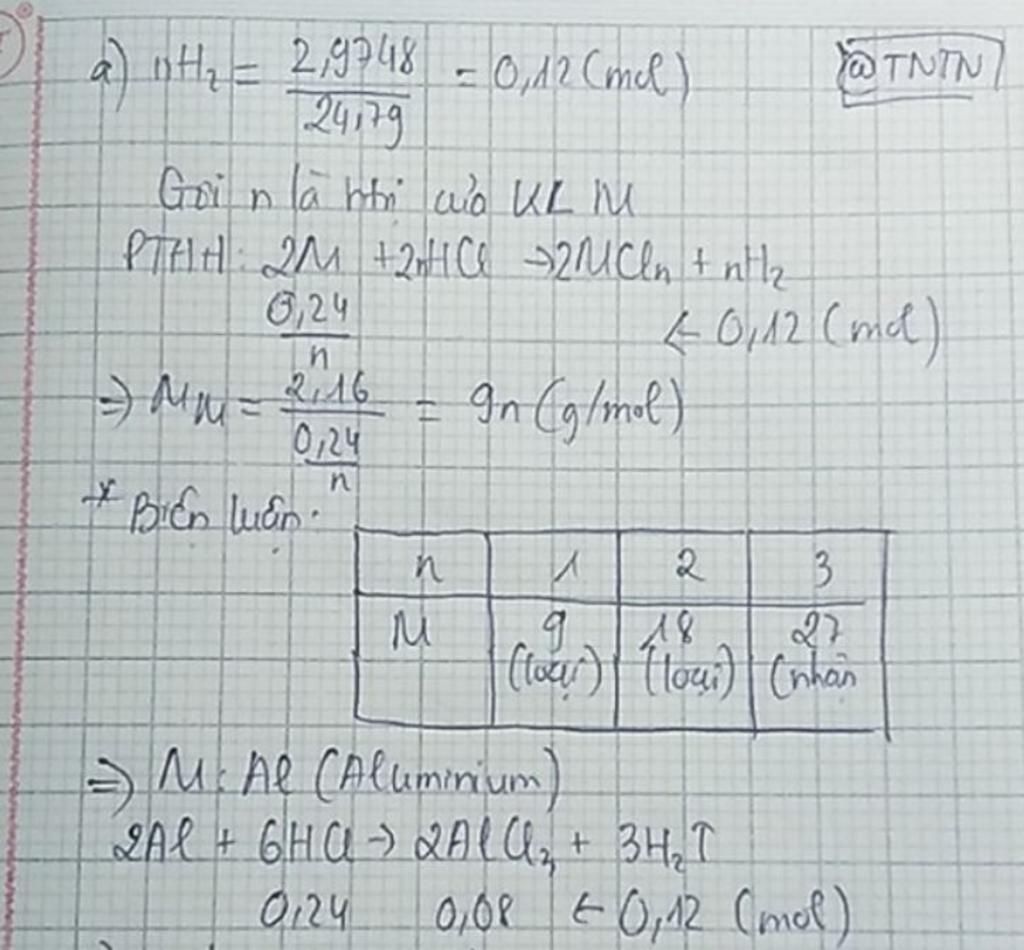 a) nH₂ = 2,9748 / 24,79 = 0,12 (mol)
@TNTN
Gọi n là htrị của KL M
PTHH: 2M + 2nHCl → 2MCln + nH₂
0,24/n ← 0,12 (mol)
⇒ MM = 2,16 / (0,24/n) = 9n (g/mol)
* Biện luận:
n 1 2 3
M 9 18 27
(loại) (loại) (nhận
⇒ M: Al (Aluminium)
2Al + 6HCl → 2AlCl₃ + 3H₂↑
0,24 0,08 ← 0,12 (mol)